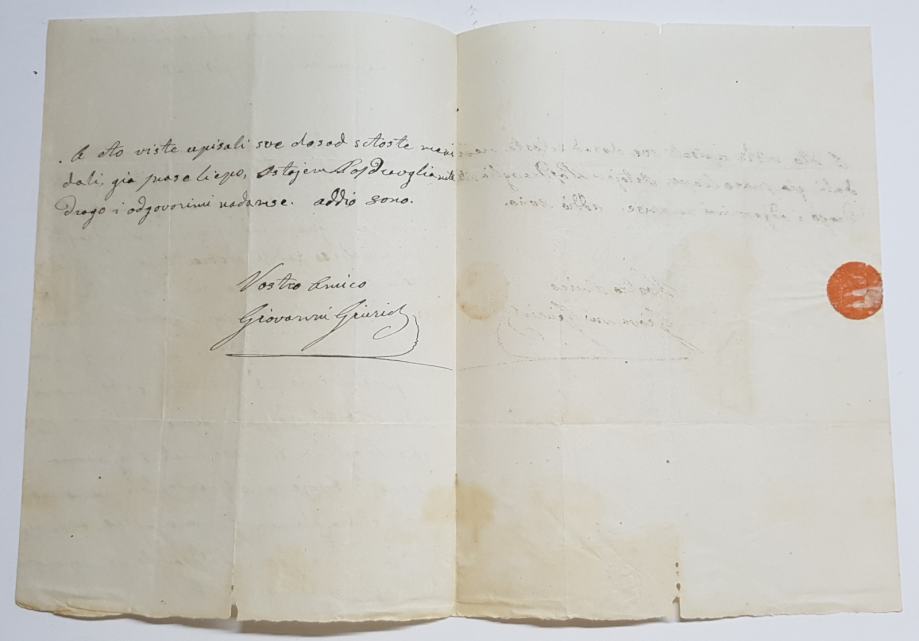 A oto viste upisali sve dosad sctoste meni
dali, gia pase liepo, ostojem
Drago i odgovorimi nadamse. addio sono.
Vostro Amico
Giovanni Giurich